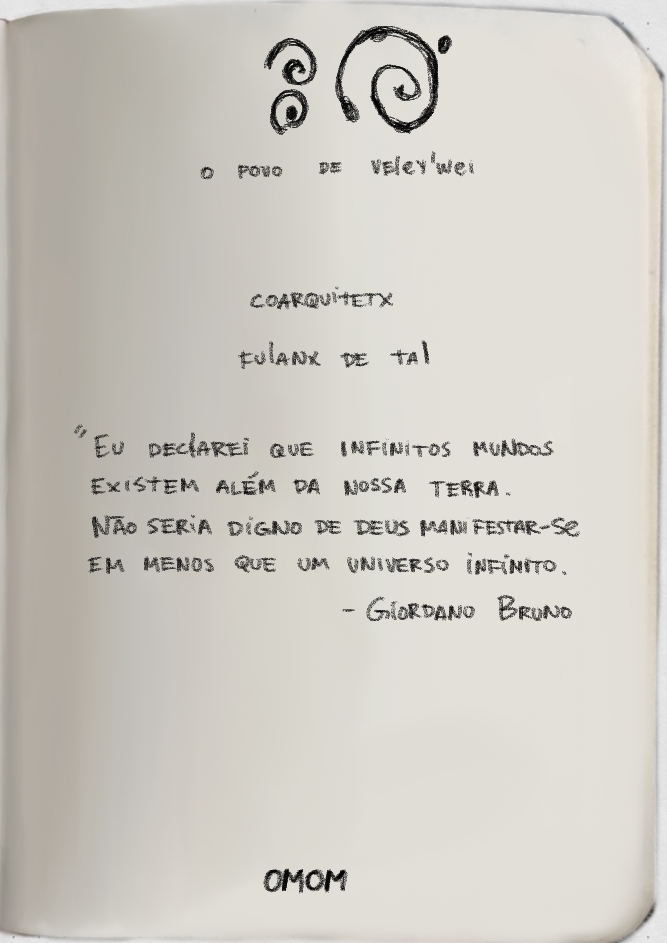 O POVO DE Veley'wei
COARQUITETX
FULANX DE TAL
"EU DECLAREI QUE INFINITOS MUNDOS
EXISTEM ALÉM DA NOSSA TERRA.
NÃO SERIA DIGNO DE DEUS MANIFESTAR-SE
EM MENOS QUE UM UNIVERSO INFINITO.
- GIORDANO BRUNO
OMOM